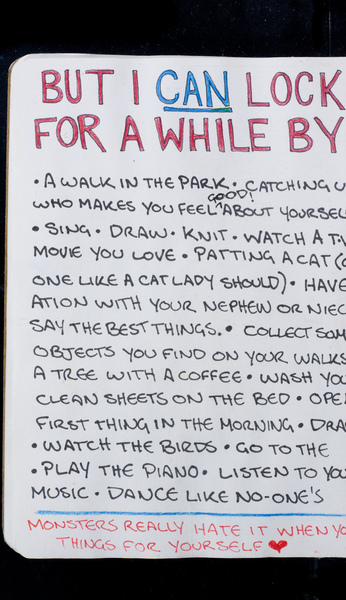 BUT I CAN LOCK
FOR A WHILE BY
• A WALK IN THE PARK • CATCHING U
GOOD!
WHO MAKES YOU FEEL ^ ABOUT YOURSEL
• SING • DRAW • KNIT • WATCH A TV
MOVIE YOU LOVE • PATTING A CAT (O
ONE LIKE A CAT LADY SHOULD) • HAVE
ATION WITH YOUR NEPHEW OR NIEC
SAY THE BEST THINGS. • COLLECT SOM
OBJECTS YOU FIND ON YOUR WALKS
A TREE WITH A COFFEE • WASH YOU
CLEAN SHEETS ON THE BED • OPE
FIRST THING IN THE MORNING • DRA
• WATCH THE BIRDS • GO TO THE
• PLAY THE PIANO • LISTEN TO YOU
MUSIC • DANCE LIKE NO-ONE'S
MONSTERS REALLY HATE IT WHEN YO
THINGS FOR YOURSELF ♥